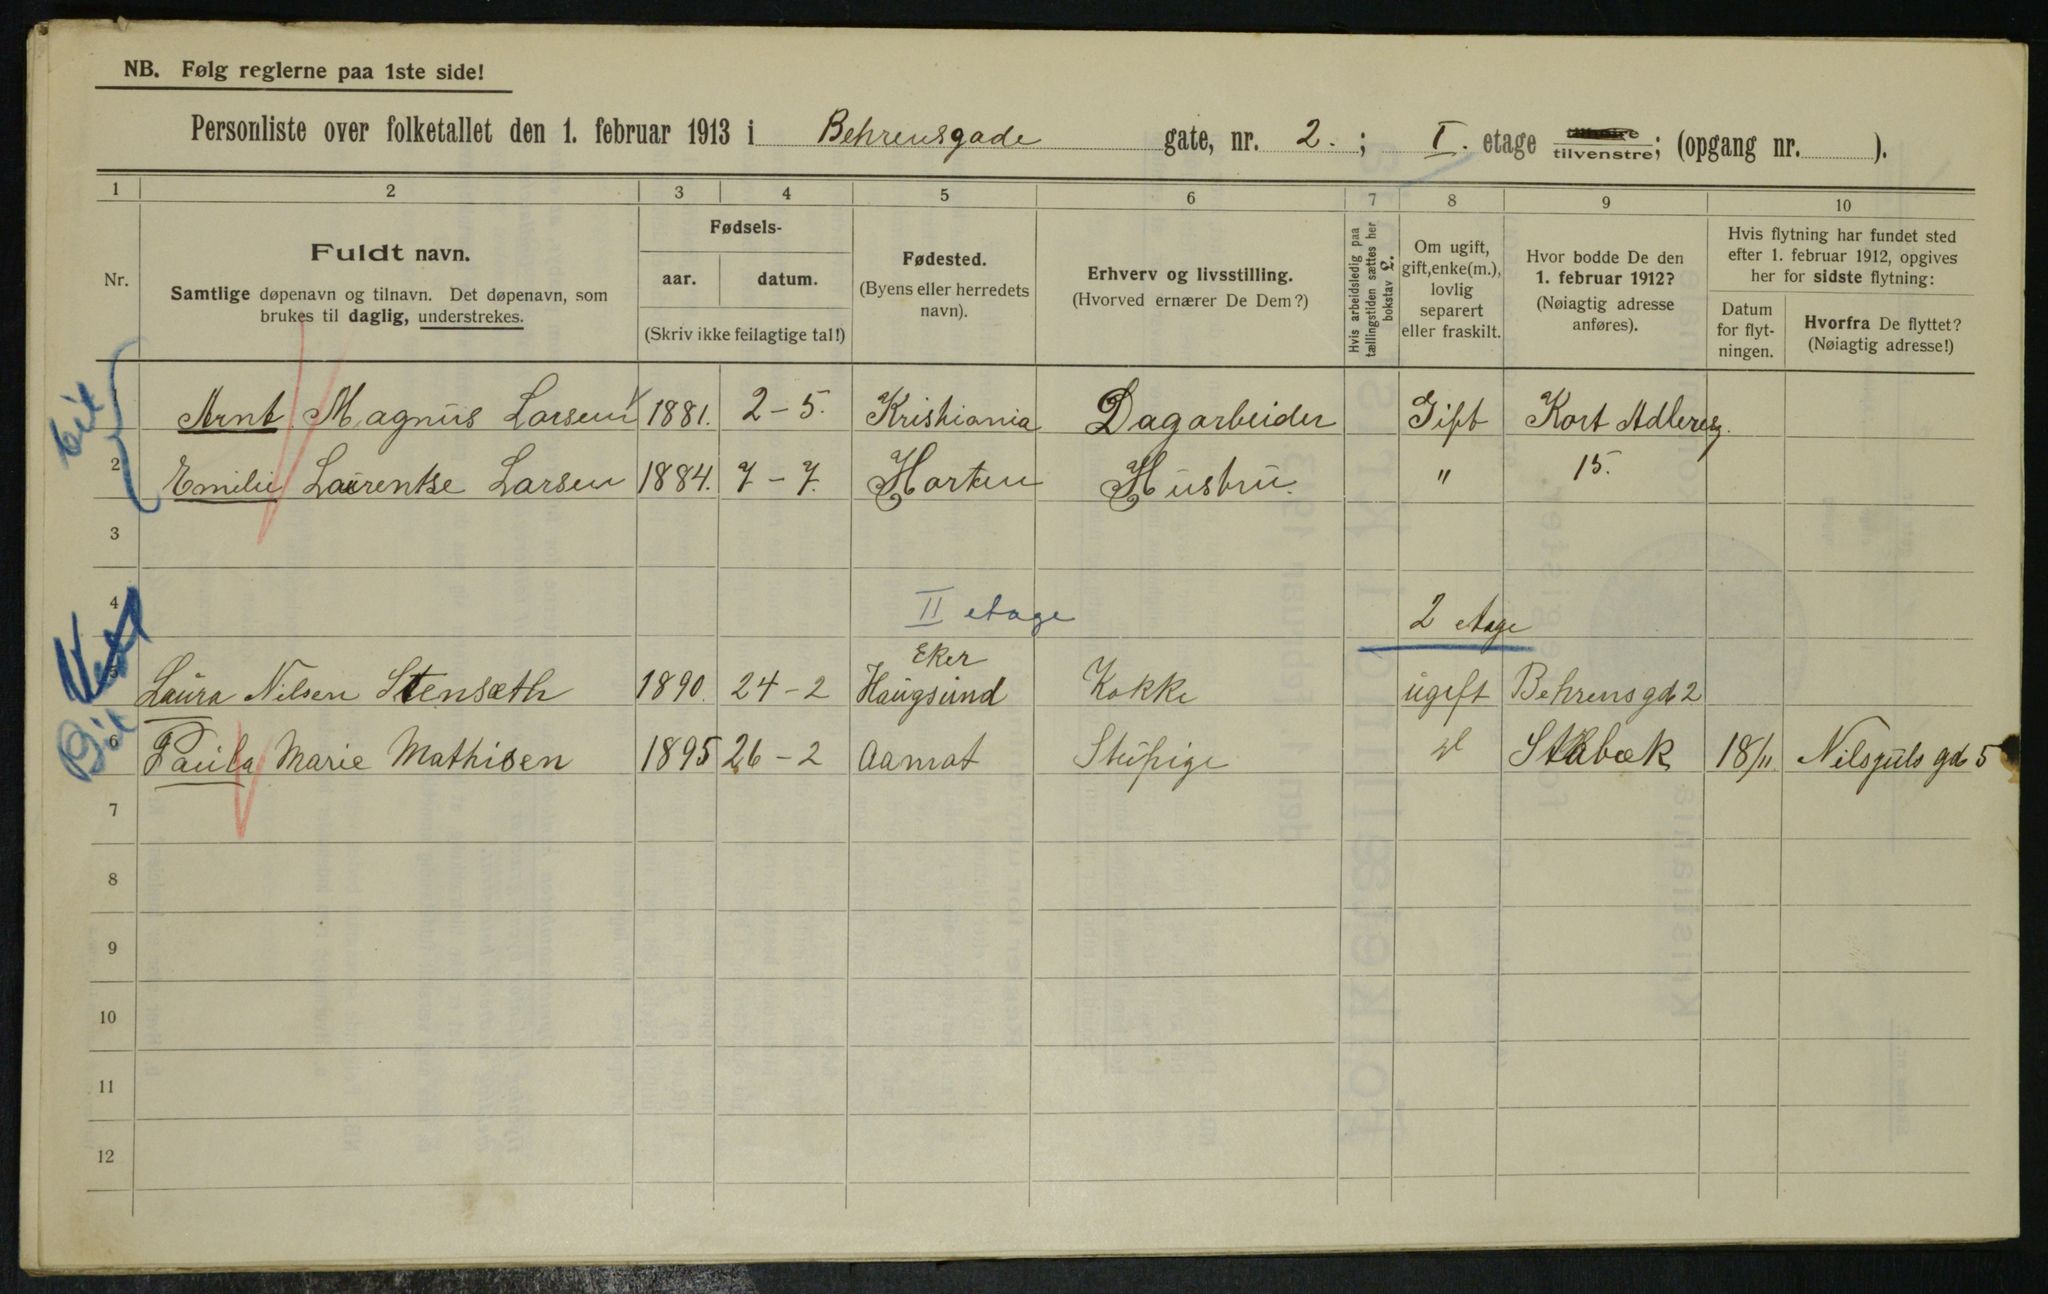 NB. Følg reglerne paa 1ste side!
Personliste over folketallet den 1. februar 1913 i Behrensgade gate, nr. 2. ; I. etage tilvenstre; (opgang nr. ).
1 2 3 4 5 6 7 8 9 10
Nr.
Fuldt navn.
Samtlige døpenavn og tilnavn. Det døpenavn, som
brukes til daglig, understrekes.
Fødsels-
aar. datum.
(Skriv ikke feilagtige tal!)
Fødested.
(Byens eller herredets
navn).
Erhverv og livsstilling.
(Hvorved ernærer De Dem?)
Hvis arbeidsledig paa
tællingstiden sættes her
bokstav L.
Om ugift,
gift, enke(m.),
lovlig
separert
eller fraskilt.
Hvor bodde De den
1. februar 1912?
(Nøiagtig adresse
anføres).
Hvis flytning har fundet sted
efter 1. februar 1912, opgives
her for sidste flytning:
Datum
for flyt-
ningen.
Hvorfra De flyttet?
(Nøiagtig adresse!)
1 Arnt Magnus Larsen 1881. 2-5. Kristiania Dagarbeider Gift Kort Adlersg.
2 Emilie Laurentse Larsen 1884. 7-7. Horten Hustru. " 15.
3
4 II etage 2 etage
Eker
5 Laura Nilsen Stensæth 1890. 24-2 Haugsund Kokke ugift Behrensgd 2
6 Paula Marie Mathisen 1895 26-2 Aamot Stupige Stabæk 18/11 Nilsjuls gd 5
7
8
9
10
11
12